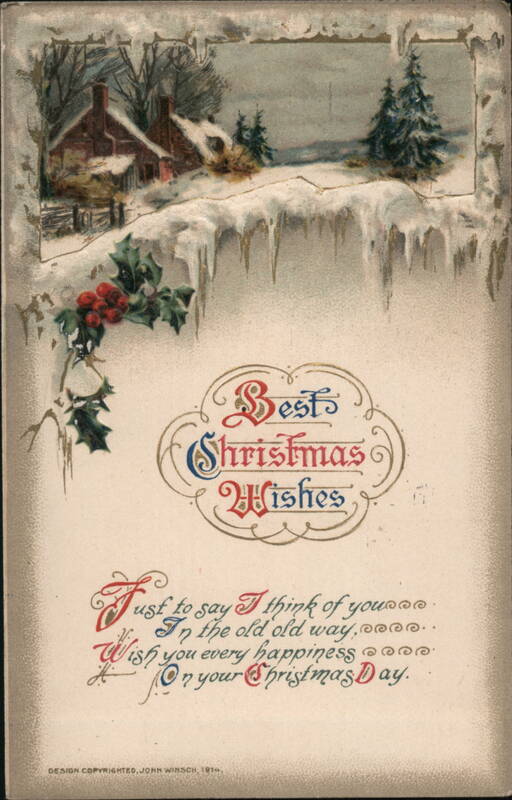 Best
Christmas
Wishes
Just to say I think of you
In the old old way,
Wish you every happiness
On your Christmas Day.
DESIGN COPYRIGHTED, JOHN WINSCH, 1914.